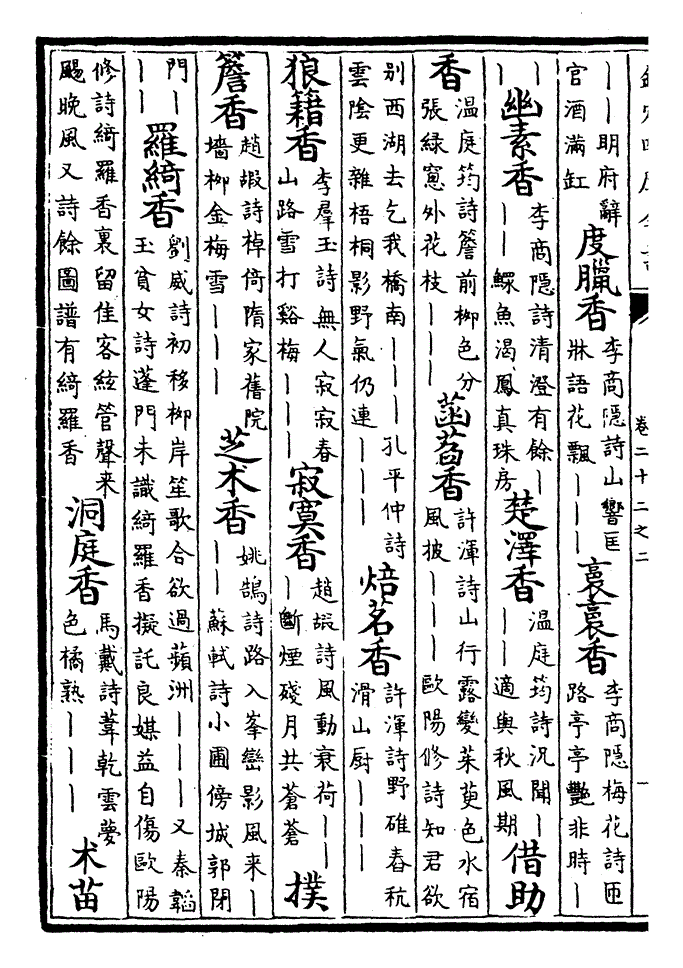 卷二十二之二
——明府辭
官酒滿缸
度臘香
李商隱詩山響匡
牀語花飄———
裛裛香
李商隱梅花詩匝
路亭亭豔非時—
—
—
幽素香
李商隱詩清澄有餘—
——鰥魚渴鳳真珠房
楚澤香
温庭筠詩況聞—
——適與秋風期
借助
香
温庭筠詩簷前柳色分
張緑窻外花枝———
菡萏香
許渾詩山行露變茱萸色水宿
風披———歐陽修詩知君欲
别西湖去乞我橋南———孔平仲詩
雲陰更雜梧桐影野氣仍連———
焙茗香
許渾詩野碓舂秔
滑山厨———
狼籍香
李羣玉詩無人寂寂春
山路雪打谿梅———
寂寞香
趙嘏詩風動衰荷——
—斷煙殘月共蒼蒼
撲
簷香
趙嘏詩棹倚隋家舊院
墻柳金梅雪———
芝术香
姚鵠詩路入峯巒影風来—
——蘇軾詩小圃傍城郭閉
門—
——
羅綺香
劉威詩初移柳岸笙歌合欲過蘋洲———又秦韜
玉貧女詩蓬門未識綺羅香擬託良媒益自傷歐陽
修詩綺羅香裏留佳客絃管聲来
颺晚風又詩餘圖譜有綺羅香
洞庭香
馬戴詩葦乾雲夢
色橘熟———
术苗